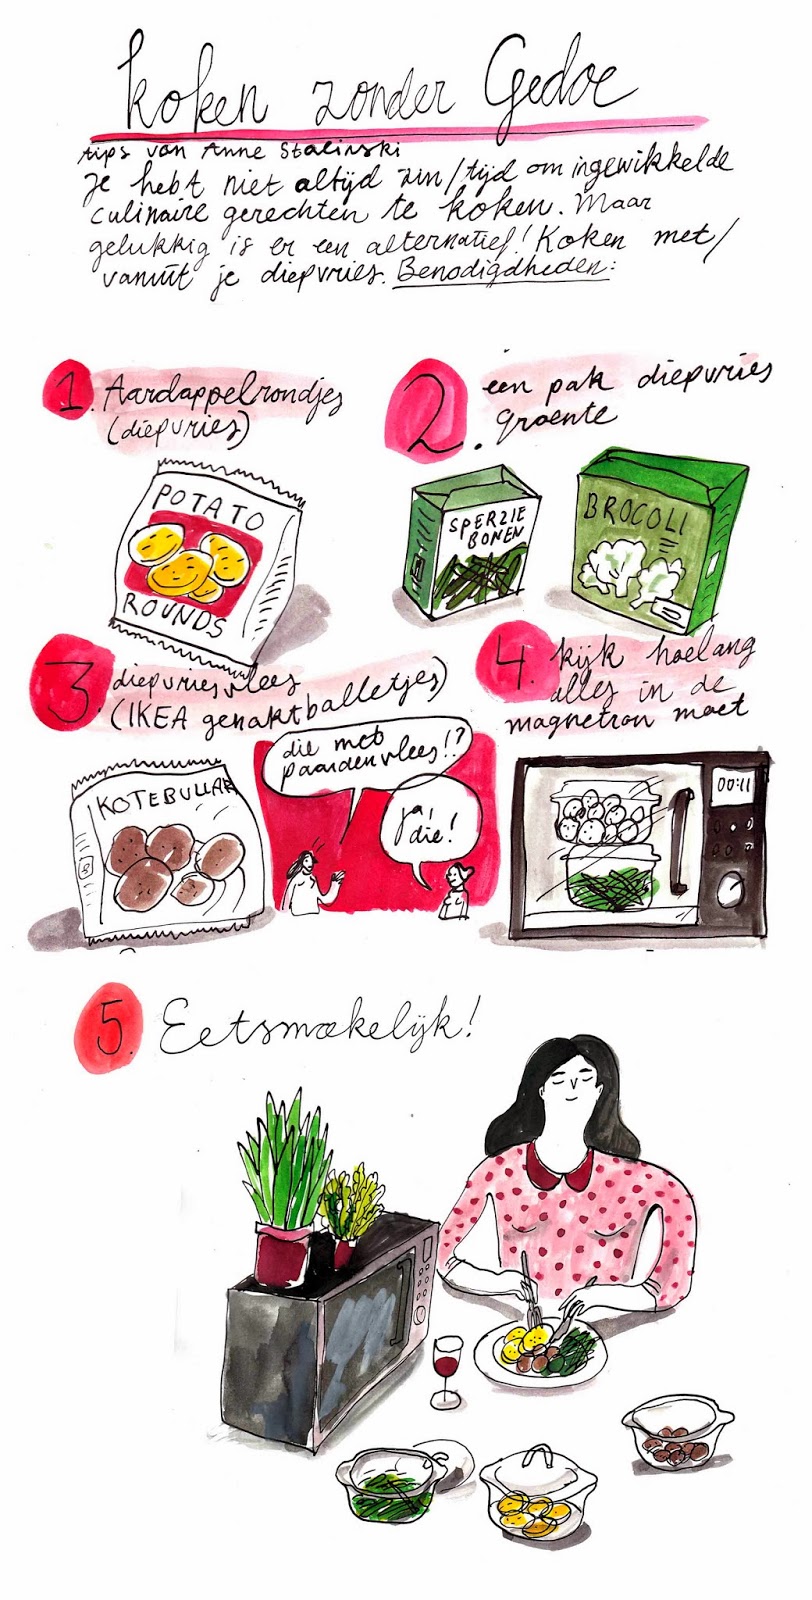 koken zonder Gedoe
tips van Anne Stalinski
Je hebt niet altijd zin/tijd om ingewikkelde
culinaire gerechten te koken. Maar
gelukkig is er een alternatief! Koken met/
vanuit je diepvries. Benodigdheden:
1. Aardappelrondjes
(diepvries)
POTATO
ROUNDS
2. één pak diepvries
groente
SPERZIE
BONEN
BROCOLI
3. diepvriesvlees
(IKEA gehaktballetjes)
KOTEBULLAR
die met
paardenvlees!?
ja,
die!
4. kijk hoelang
alles in de
magnetron moet
00:11
5. Eetsmakelijk!